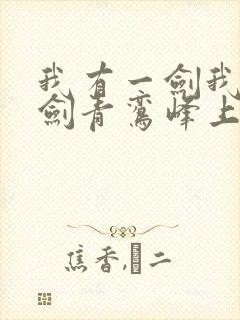 我有一剑我
剑青鸾峰上
焦香,�二